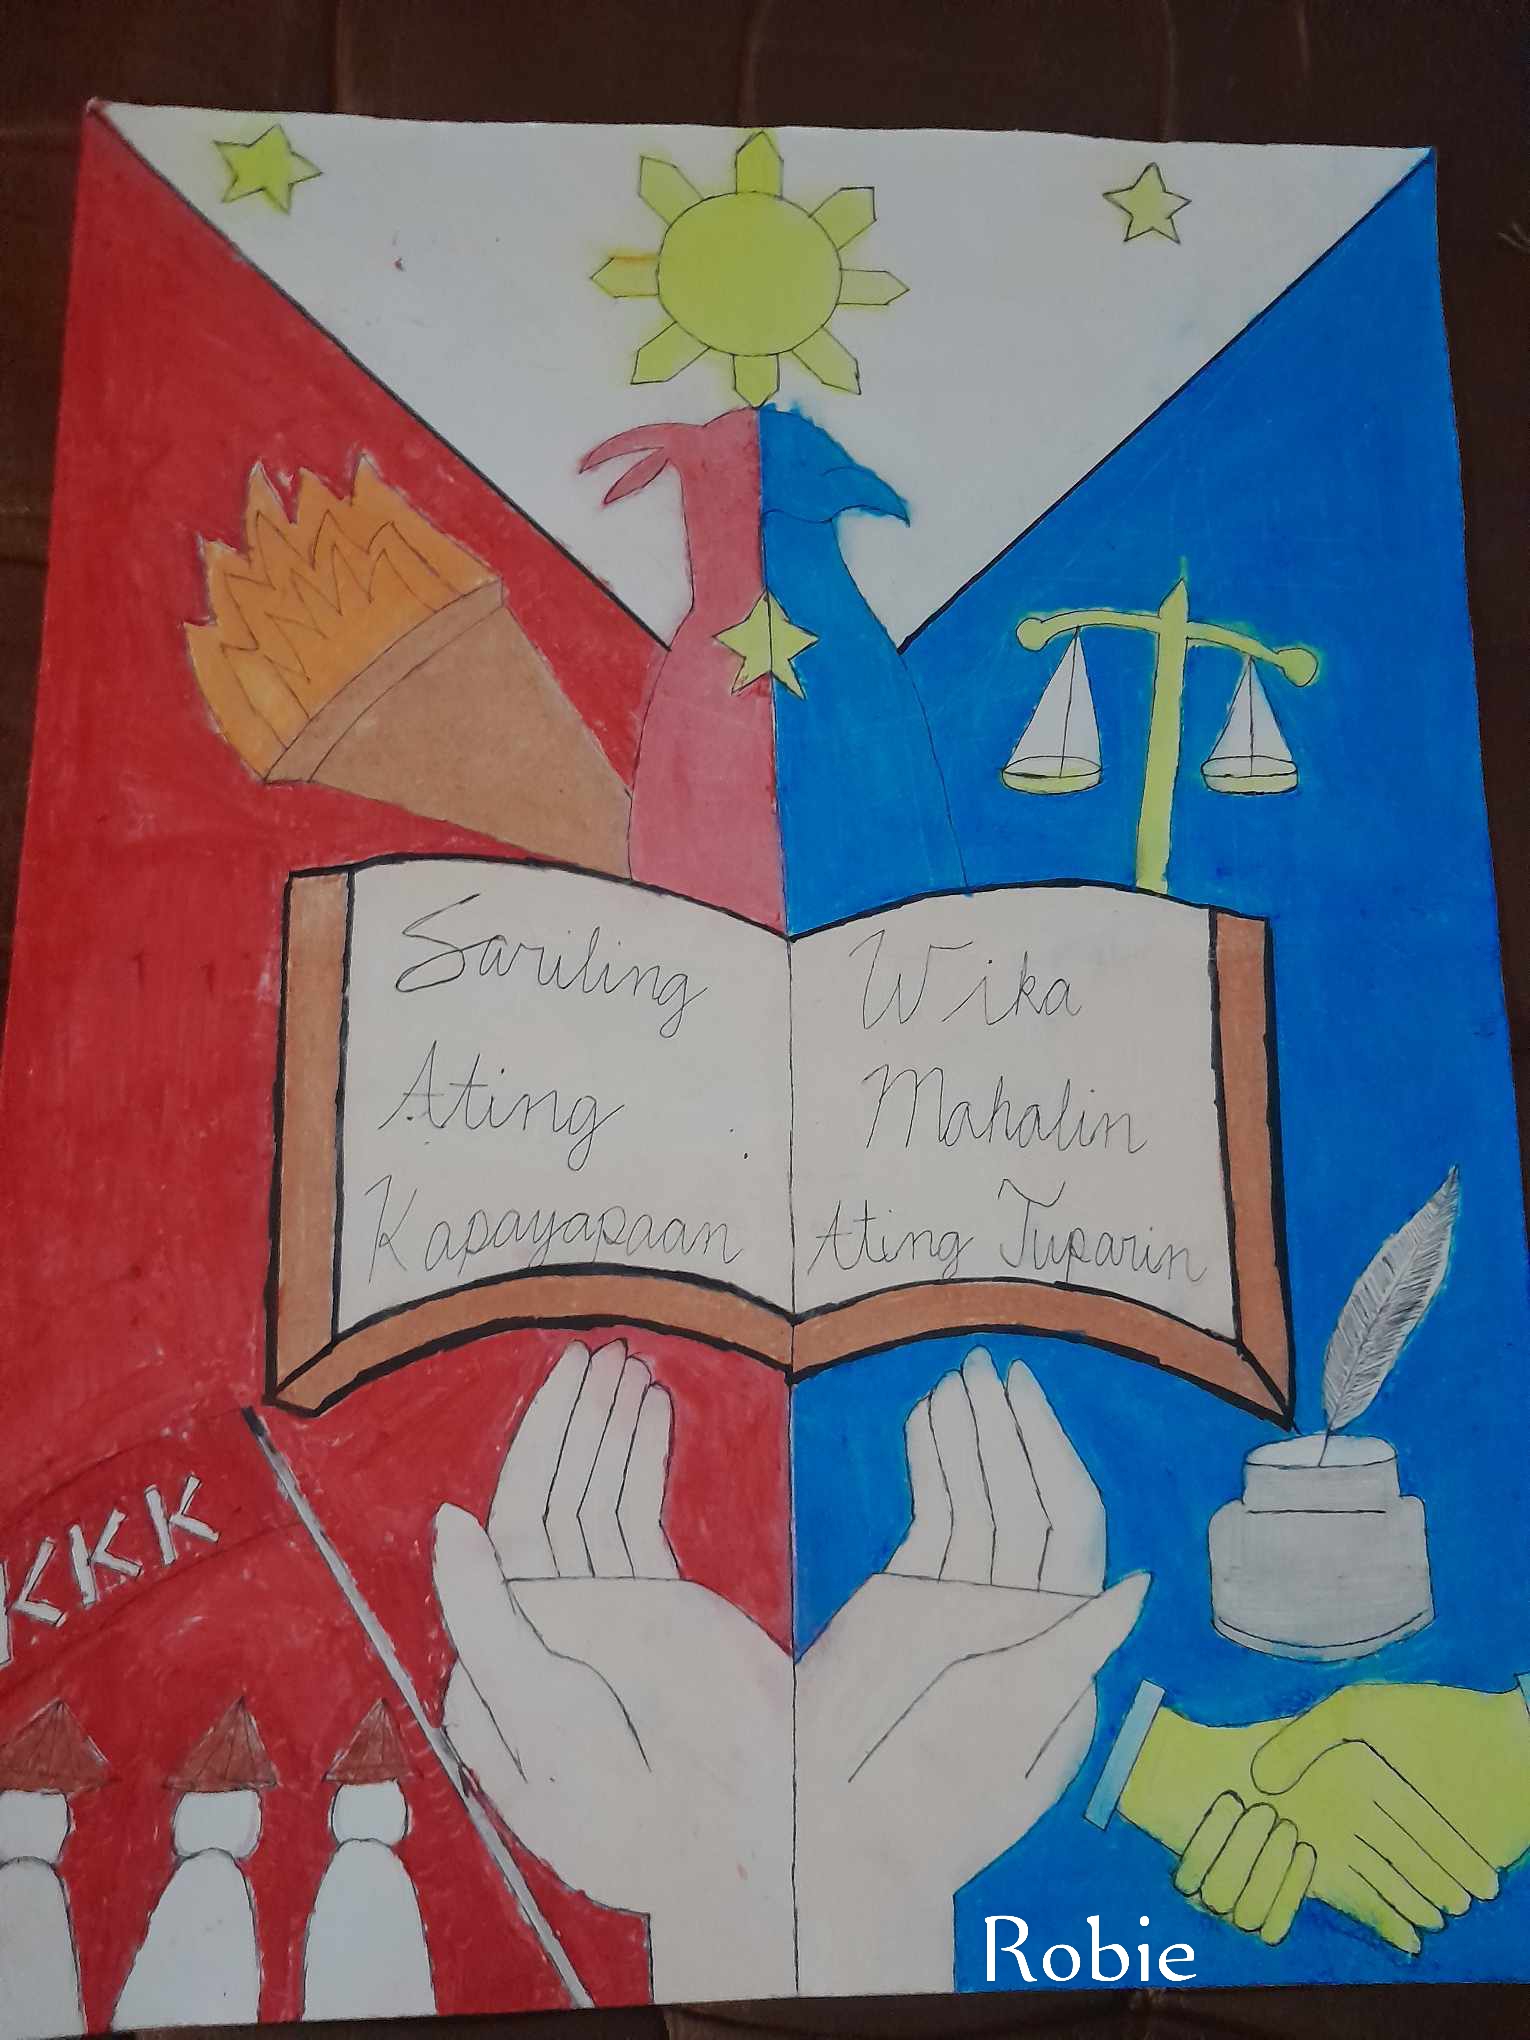 Sariling Wika
Ating Mahalin
Kapayapaan Ating Tuparin
KKK
Robie